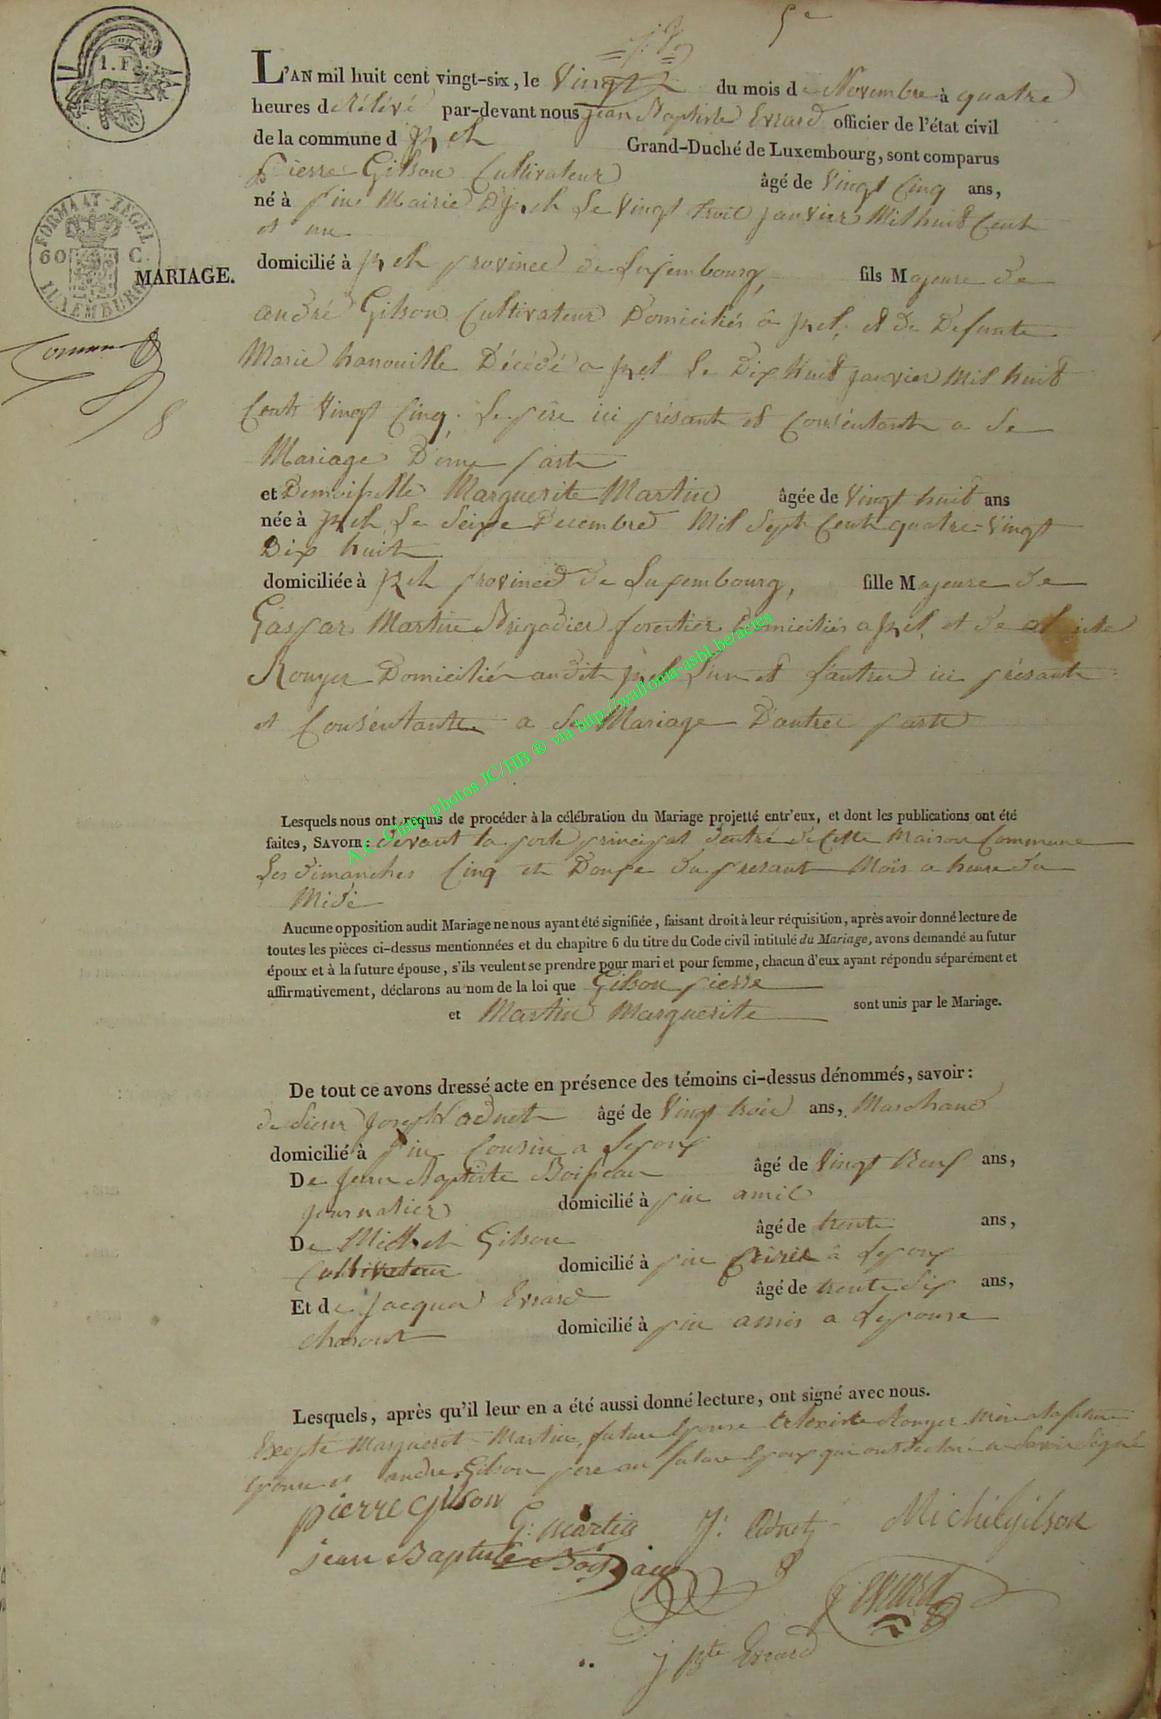 5e
I. F.
L'AN mil huit cent vingt-six, le Vingt du mois de Novembre à quatre
heures d par-devant nous Jean Baptiste Evrard officier de l'état civil
de la commune d Izel Grand-Duché de Luxembourg, sont comparus
Pierre Gilson Cultivateur âgé de Vingt Cinq ans,
né à pin Mairie D'Izel le Vingt trois janvier Mil huit Cent
et un
FORMAAT-ZEGEL
60 C.
LUXEMBURG
MARIAGE.
domicilié à Izel province de Luxembourg, fils Majeure de
andré Gilson Cultivateur Domiciliés à Izel, et de Defunte
Marie hanouille Décédé a Izel le Dix huit janvier Mil huit
Cent Vingt Cinq, le père ici présant et Consentant a Se
Mariage D'une part
et Demoiselle Marguerite Martin âgée de Vingt huit ans
née à Izel le Seize Decembre Mil Sept Cent quatre-Vingt
Dix huit
domiciliée à Izel province de Luxembourg, fille Majeure de
Gaspar Martin Brigadier forestier Domiciliés a Izel, et de
Rouyer Domiciliés audit Izel l'un et l'autre ici présant
et Consentante a Se Mariage D'autre part
A.C. Chiny photos JC/HB ® via http://wallonia-asbl.be/actes
Lesquels nous ont requis de procéder à la célébration du Mariage projetté entr'eux, et dont les publications ont été
faites, SAVOIR: devant la porte principal d'entré de Cette Maison Commune
Les dimanches Cinq et Douze du presant Mois a heure du
Midi
Aucune opposition audit Mariage ne nous ayant été signifiée, faisant droit à leur réquisition, après avoir donné lecture de
toutes les pièces ci-dessus mentionnées et du chapitre 6 du titre du Code civil intitulé du Mariage, avons demandé au futur
époux et à la future épouse, s'ils veulent se prendre pour mari et pour femme, chacun d'eux ayant répondu séparément et
affirmativement, déclarons au nom de la loi que Gilson pierre
et Martin Marguerite sont unis par le Mariage.
De tout ce avons dressé acte en présence des témoins ci-dessus dénommés, savoir:
de Sieur Joseph adnet âgé de Vingt trois ans, Marchand
domicilié à pin Cousin a Lepoux
De Jean Baptiste Boisseau âgé de Vingt neuf ans,
journalier domicilié à pin amie
De Michel Gilson âgé de trente ans,
Cultivateur domicilié à pin frere à Lepoux
Et de Jacques Evrard âgé de trente Six ans,
domicilié à pin amis a Lepouse
Lesquels, après qu'il leur en a été aussi donné lecture, ont signé avec nous.
Exepte Marguerit Martin, future Epouse Rouyer Mère a la future
Epouse et andre Gilson pere au future Epoux qui ont declaré a Savoir Signé
pierre Gilson
G: martin J: Adnet Michel gilson
jean Baptiste Boisseau
J evrard
J Bte Evrard